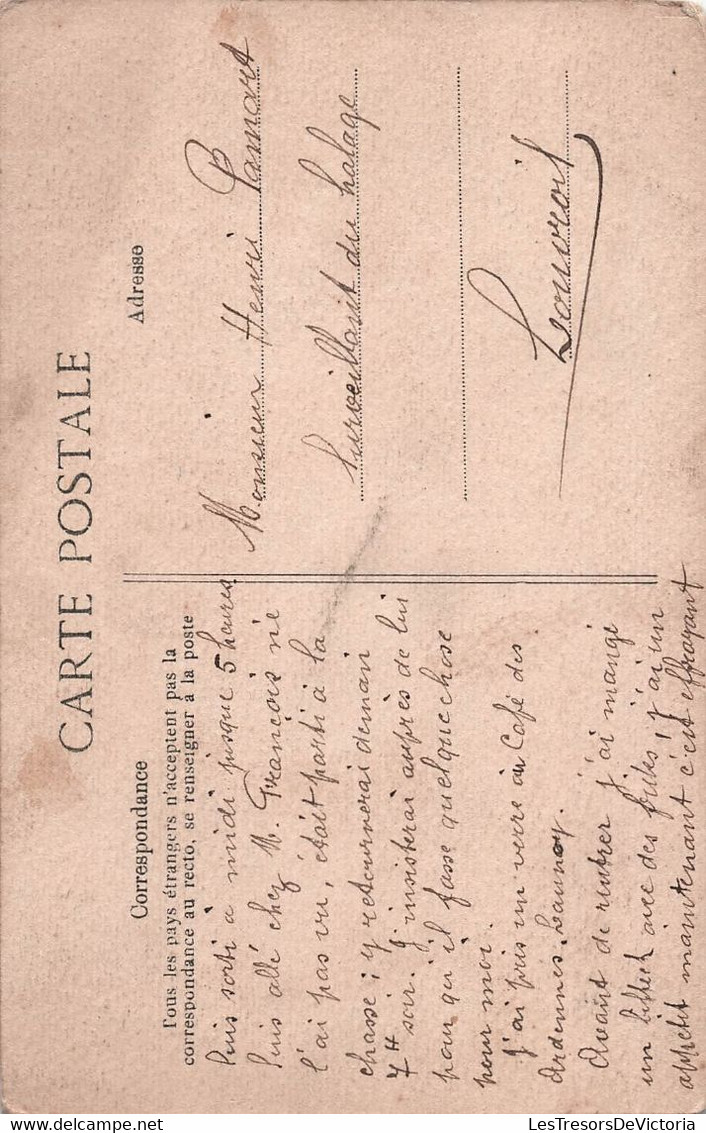 CARTE POSTALE
Correspondance
Tous les pays étrangers n'acceptent pas la
correspondance au recto, se renseigner à la poste
Suis sorti à midi jusque 5 heures
Suis allé chez M. François ne
l'ai pas vu, était parti à la
chasse ; y retournerai demain
7H soir. J'insisterai auprès de lui
pour qu'il fasse quelque chose
pour moi.
J'ai pris un verre au Café des
Ardennes. Launoy.
Avant de rentrer j'ai mangé
un bifteck avec des frites ; j'ai un
appétit maintenant c'est effrayant
Adresse
Monsieur Henri Pamart
Surveillant du halage
Louvroil
LesTresorsDeVictoria
delcampe.net